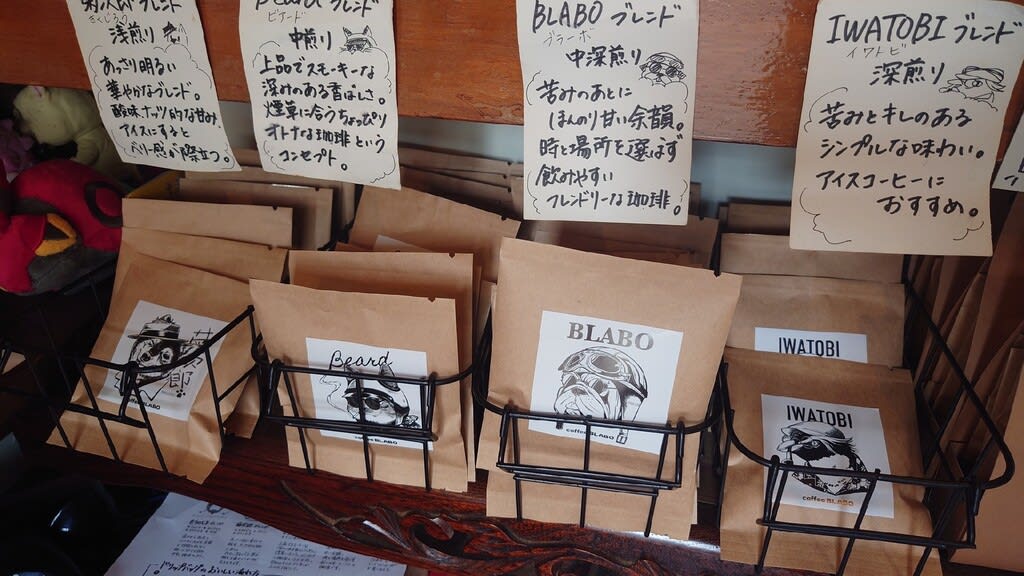 菊次郎ブレンド
きくじろう
浅煎り
あっさり明るい
華やかなブレンド。
酸味ナッツ的な甘み。
アイスにすると
ベリー感が際立つ。
Beardブレンド
ビアード
中煎り
上品でスモーキーな
深みのある香ばしさ。
煙草に合うちょっぴり
オトナな珈琲という
コンセプト。
BLABOブレンド
ブラーボ
中深煎り
苦みのあとに
ほんのり甘い余韻。
時と場所を選ばず
飲みやすい
フレンドリーな珈琲。
IWATOBIブレンド
イワトビ
深煎り
苦みとキレのある
シンプルな味わい。
アイスコーヒーに
おすすめ。
郎
BLABO
Beard
coffee BLABO
BLABO
coffee BLABO
IWATOBI
IWATOBI
coffee BLABO
ドリップバッグのおいしい淹れ方